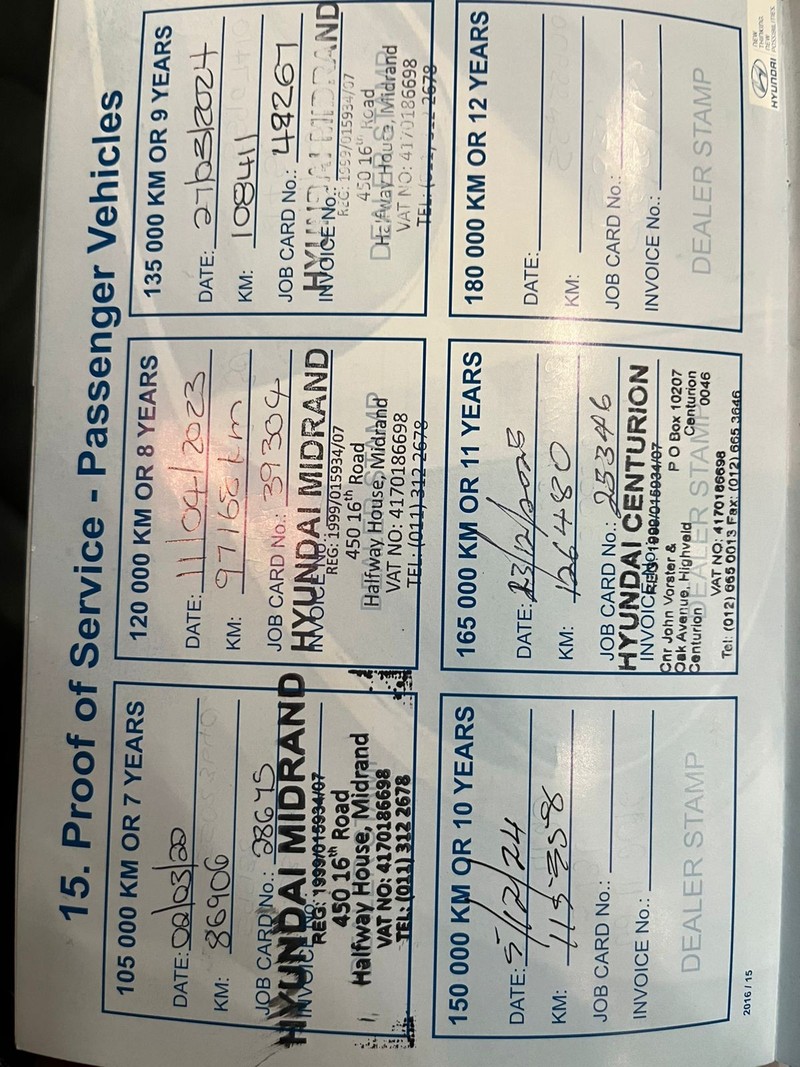 15. Proof of Service - Passenger Vehicles
105 000 KM OR 7 YEARS
DATE: 02/03/20
KM: 86906
JOB CARD No.: 28675
HYUNDAI MIDRAND
INVOICE No.:
REG: 1999/015934/07
450 16th Road
Halfway House, Midrand
VAT NO: 4170186698
TEL: (011) 312 2678
120 000 KM OR 8 YEARS
DATE: 11/04/2023
KM: 97168km
JOB CARD No.: 39304
HYUNDAI MIDRAND
INVOICE No.:
REG: 1999/015934/07
450 16th Road
Halfway House, Midrand
DEALER STAMP
VAT NO: 4170186698
TEL: (011) 312 2678
135 000 KM OR 9 YEARS
DATE: 27/03/2024
KM: 108411
JOB CARD No.: 48267
HYUNDAI MIDRAND
INVOICE No.:
REG: 1999/015934/07
450 16th Road
Halfway House, Midrand
DEALER STAMP
VAT NO: 4170186698
TEL: (011) 312 2678
150 000 KM OR 10 YEARS
DATE: 5/12/24
KM:
JOB CARD No.:
INVOICE No.:
DEALER STAMP
165 000 KM OR 11 YEARS
DATE: 23/12/2025
KM: 126480
JOB CARD No.: 25346
HYUNDAI CENTURION
INVOICE No.:
REG: 1999/015934/07
Cnr John Vorster & P O Box 10207
Oak Avenue, Highveld Centurion
Centurion 0046
DEALER STAMP
VAT NO: 4170186698
Tel: (012) 665 0013 Fax: (012) 665 3646
180 000 KM OR 12 YEARS
DATE:
KM:
JOB CARD No.:
INVOICE No.:
DEALER STAMP
2016 / 15
HYUNDAI
NEW THINKING.
NEW POSSIBILITIES.